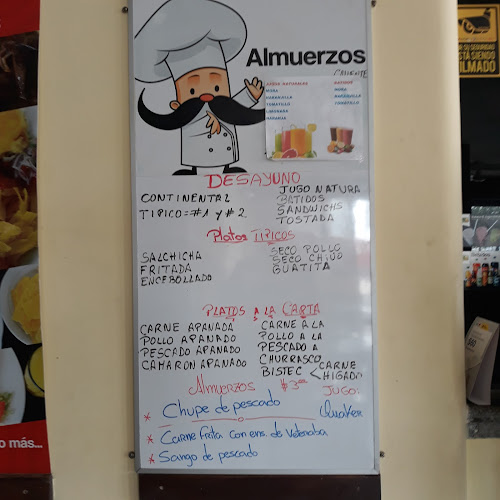 Almuerzos
CALIENTE
JUGOS NATURALES
MORA
NARANJILLA
TOMATILLO
LIMONADA
NARANJA
BATIDOS
MORA
NARANJILLA
TOMATILLO
DESAYUNO
CONTINENTAL
TIPICO = #1 y #2
JUGO NATURA
BATIDOS
SANDWICHS
TOSTADA
Platos TIPICOS
SALCHICHA
FRITADA
ENCEBOLLADO
SECO POLLO
SECO CHIVO
GUATITA
PLATOS A LA CARTA
CARNE APANADA
POLLO APANADO
PESCADO APANADO
CAMARON APANADO
CARNE A LA
POLLO A LA
PESCADO A
CHURRASCO
BISTEC < CARNE
HIGADO
Almuerzos $3.00 JUGO:
* Chupe de pescado Quaker
* Carne frita con ens. de
* Sango de pescado
ESTÁ SIENDO
FILMADO
o más...